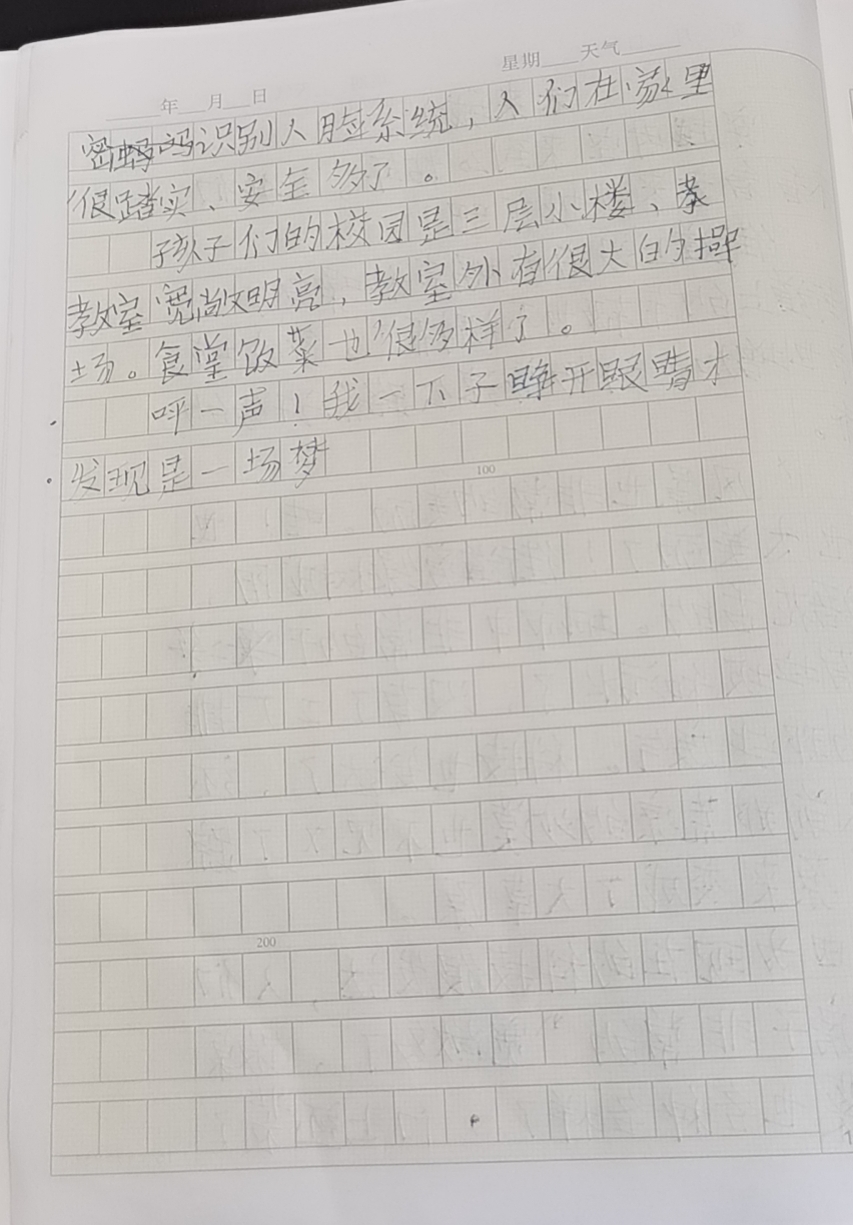 年 月 日 星期 天气
密蚂吗识别人脸系统，人们在家里
很踏实、安全多了。
孩子们的校园是三层小楼、孝
教室宽敞明亮，教室外有很大的操
场。食堂饭菜也很多样了。
呼一声！我一下子睁开眼睛才
发现是一场梦
100
200